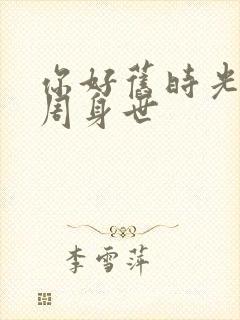 你好舊時光
周身世
李雪萍